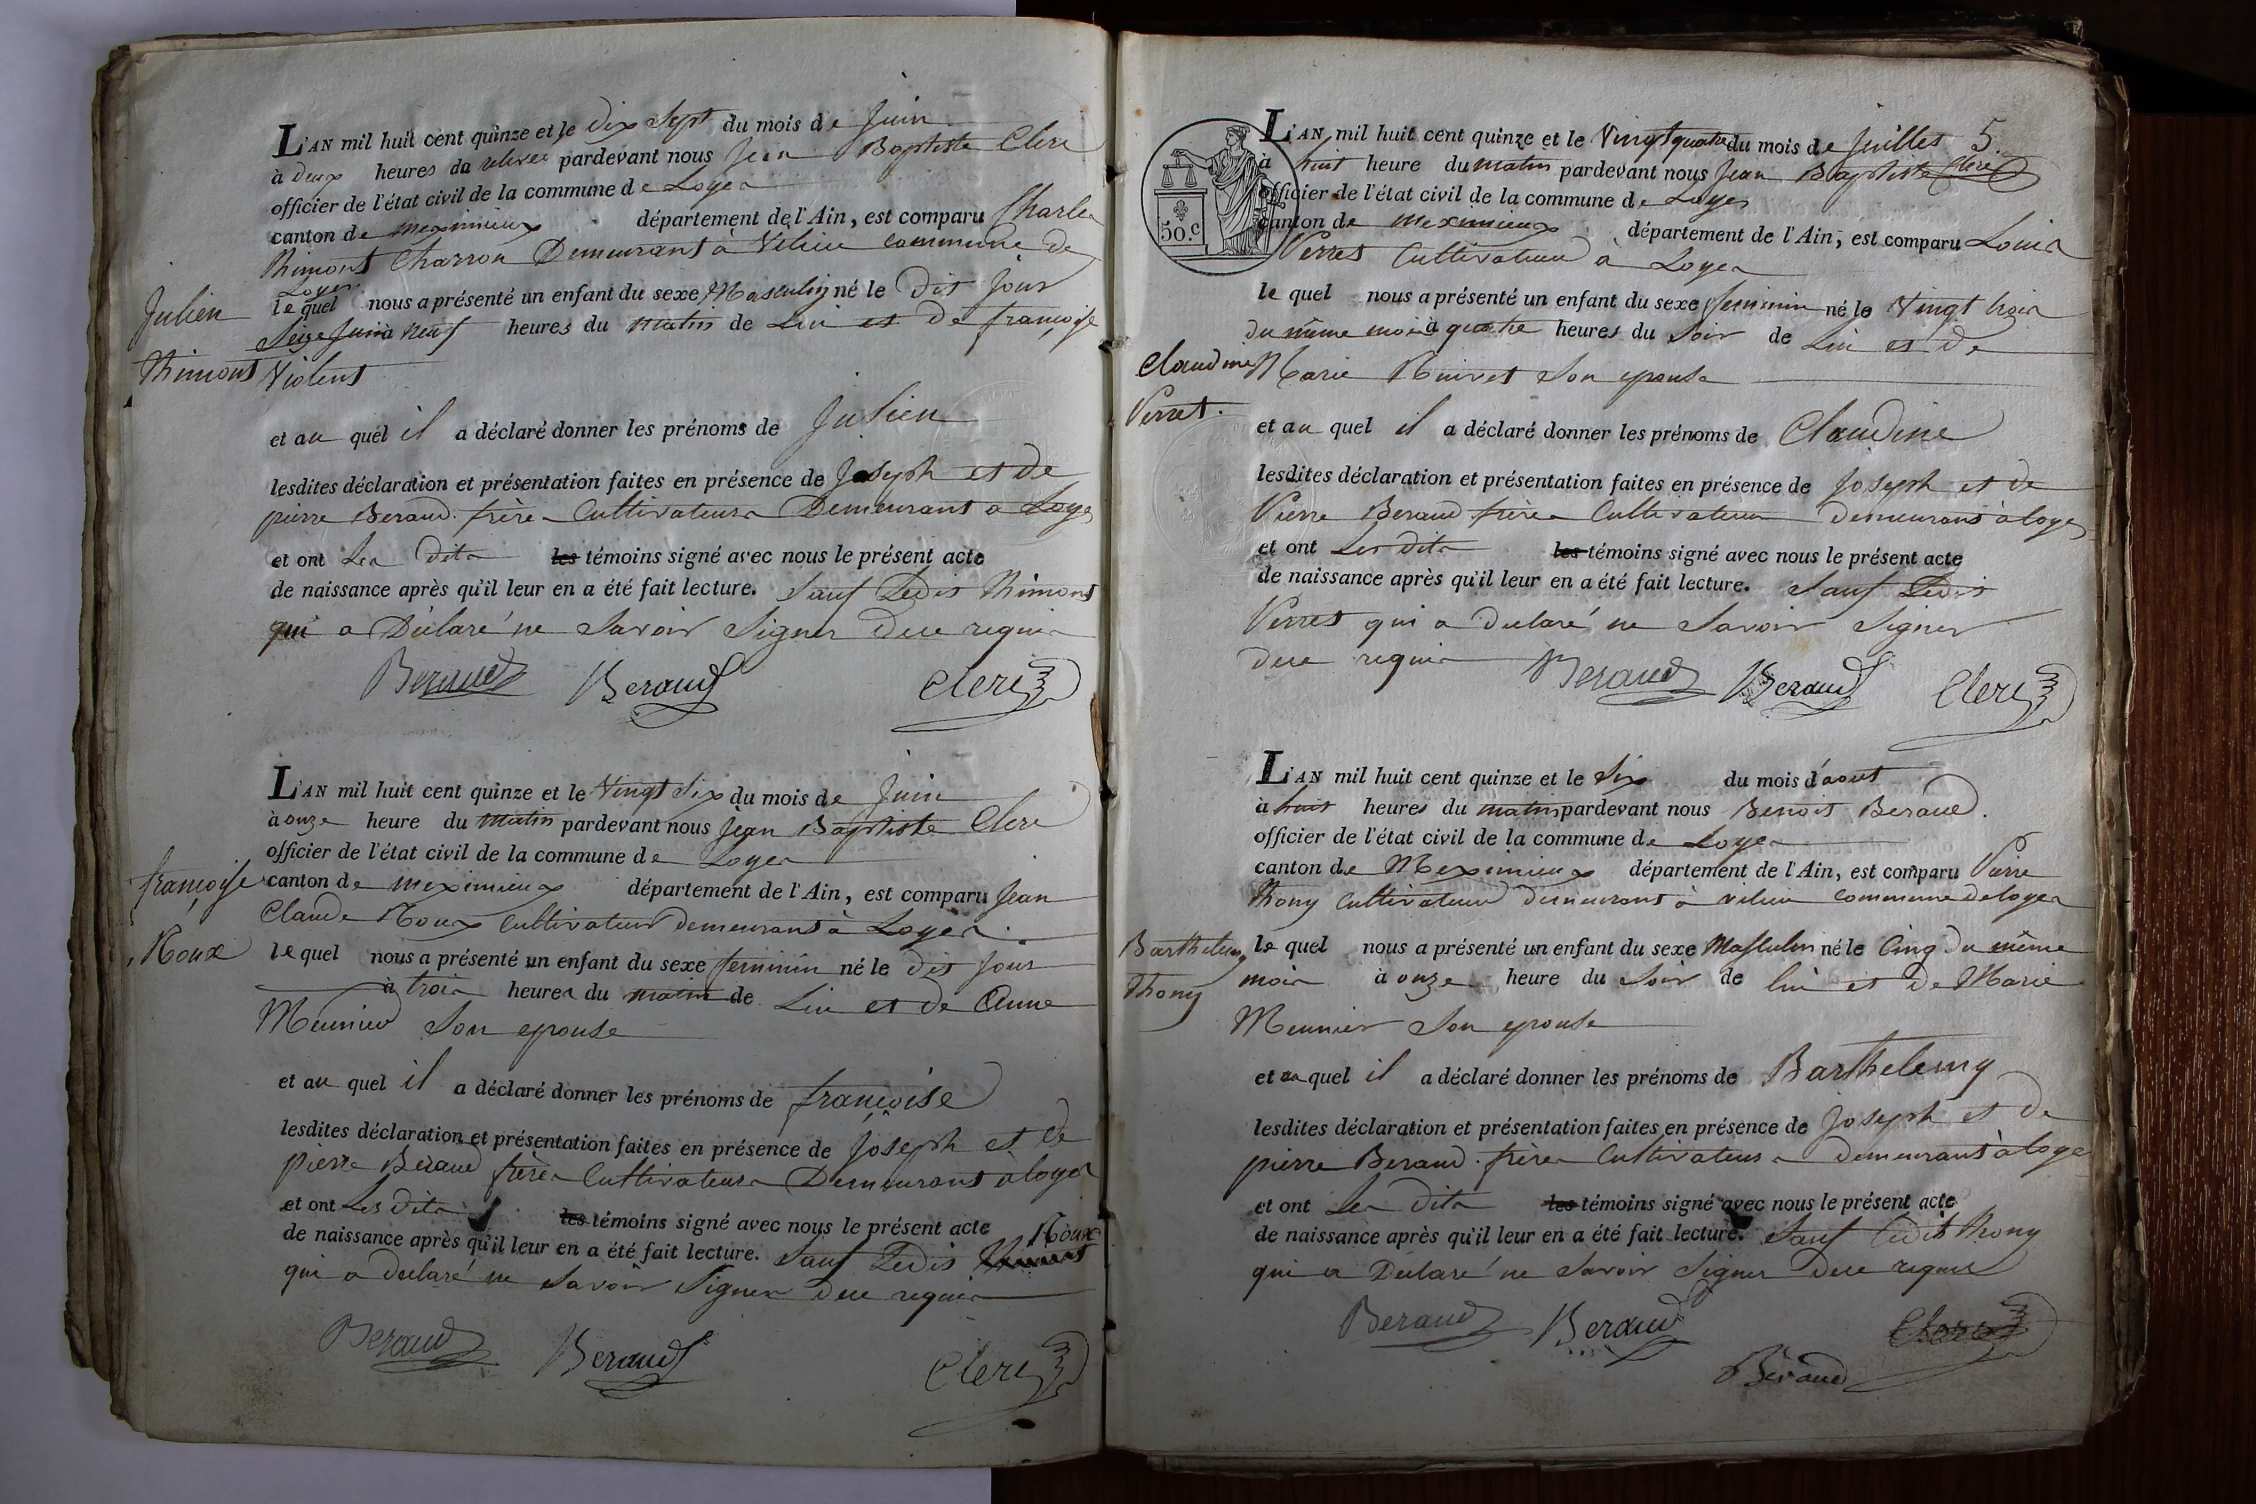 L'AN mil huit cent quinze et le dix Sept du mois de Juin
à deux heures du relevée pardevant nous Jean Baptiste Clerc
officier de l'état civil de la commune de Loyes
canton de meximieux département de l'Ain, est comparu Charles
Thimont Charron Demeurant à Vilieu commune de
Loyes
le quel nous a présenté un enfant du sexe Masculin né le dit jour
Seize Juin à neuf heures du matin de Lui et De françoise
Violent
Julien
Thimont
et au quel il a déclaré donner les prénoms de Julien
lesdites déclaration et présentation faites en présence de Joseph et de
pierre Beraud frères Cultivateurs Demeurant a Loyes
et ont Les Dits les témoins signé avec nous le présent acte
de naissance après qu'il leur en a été fait lecture. Sauf Ledit Thimont
qui a Déclaré ne Savoir Signer dece requis
Beraud Beraud Clerc
L'AN mil huit cent quinze et le Vingt Six du mois de Juin
à onze heure du matin pardevant nous Jean Baptiste Clerc
officier de l'état civil de la commune de Loyes
canton de meximieux département de l'Ain, est comparu Jean
Claude Roux Cultivateur demeurant à Loyes
françoise
Roux
le quel nous a présenté un enfant du sexe feminin né le dit jour
à trois heures du matin de Lui et de Anne
Meunier Son epouse
et au quel il a déclaré donner les prénoms de françoise
lesdites déclaration et présentation faites en présence de Joseph et de
pierre Beraud frères Cultivateurs Demeurant à loyes
et ont Les dits les témoins signé avec nous le présent acte
de naissance après qu'il leur en a été fait lecture. Sauf Ledit Thimont Roux
qui a declaré ne Savoir Signer dece requis
Beraud Beraud Clerc
5.
50.c
L'AN mil huit cent quinze et le Vingt quatre du mois de Juillet
à huit heure du matin pardevant nous Jean Baptiste Clerc
officier de l'état civil de la commune de Loyes
canton de meximieux département de l'Ain, est comparu Louis
Verret Cultivateur à Loyes
le quel nous a présenté un enfant du sexe feminin né le Vingt trois
du même mois à quatre heures du Soir de Lui et de
Marie Ruivet Son epouse
Claudine
Verret.
et au quel il a déclaré donner les prénoms de Claudine
lesdites déclaration et présentation faites en présence de Joseph et de
Pierre Beraud frères Cultivateurs demeurant à loyes
et ont Les dits les témoins signé avec nous le présent acte
de naissance après qu'il leur en a été fait lecture. Sauf Ledit
Verret qui a declaré ne Savoir Signer
dece requis
Beraud Beraud Clerc
L'AN mil huit cent quinze et le Six du mois d'aout
à huit heures du matin pardevant nous Benoit Beraud.
officier de l'état civil de la commune de Loyes
canton de Meximieux département de l'Ain, est comparu Pierre
Thony Cultivateur demeurant à vilieu commune de loyes
Barthelemy
Thony
le quel nous a présenté un enfant du sexe Masculin né le Cinq du même
mois à onze heure du Soir de lui et de Marie
Meunier Son epouse
et au quel il a déclaré donner les prénoms de Barthelemy
lesdites déclaration et présentation faites en présence de Joseph et de
pierre Beraud frères Cultivateurs demeurant à loyes
et ont Les dits les témoins signé avec nous le présent acte
de naissance après qu'il leur en a été fait lecture. Sauf Ledit Thony
qui a Déclaré ne Savoir Signer dece requis
Beraud Beraud Clerc
Béraud